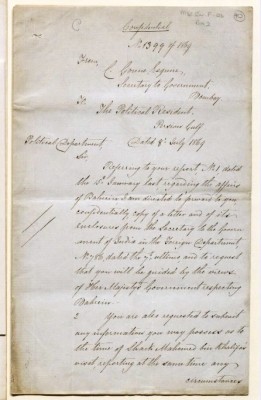 Confidential
No 1399 of 1869
From
C Gonne Esquire,
Secretary to Government,
Bombay
To
The Political Resident,
Persian Gulf
Political Department, Dated 8 July 1869
Sir,
Referring to your report No 1 dated
the 2 January last regarding the affairs
of Bahrein I am directed to forward to you
confidentially copy of a letter and of its
enclosure from the Secretary to the Govern
ment of India in the Foreign Department
No 786, dated the ultimo and to request
that you will be guided by the views
of Her Majestys Government respecting
Bahrein.
2 You are also requested to submit
any information you may possess as to
the time of Shaik Mahomed bin Khalifas
visit, reporting at the same time any
circumstances